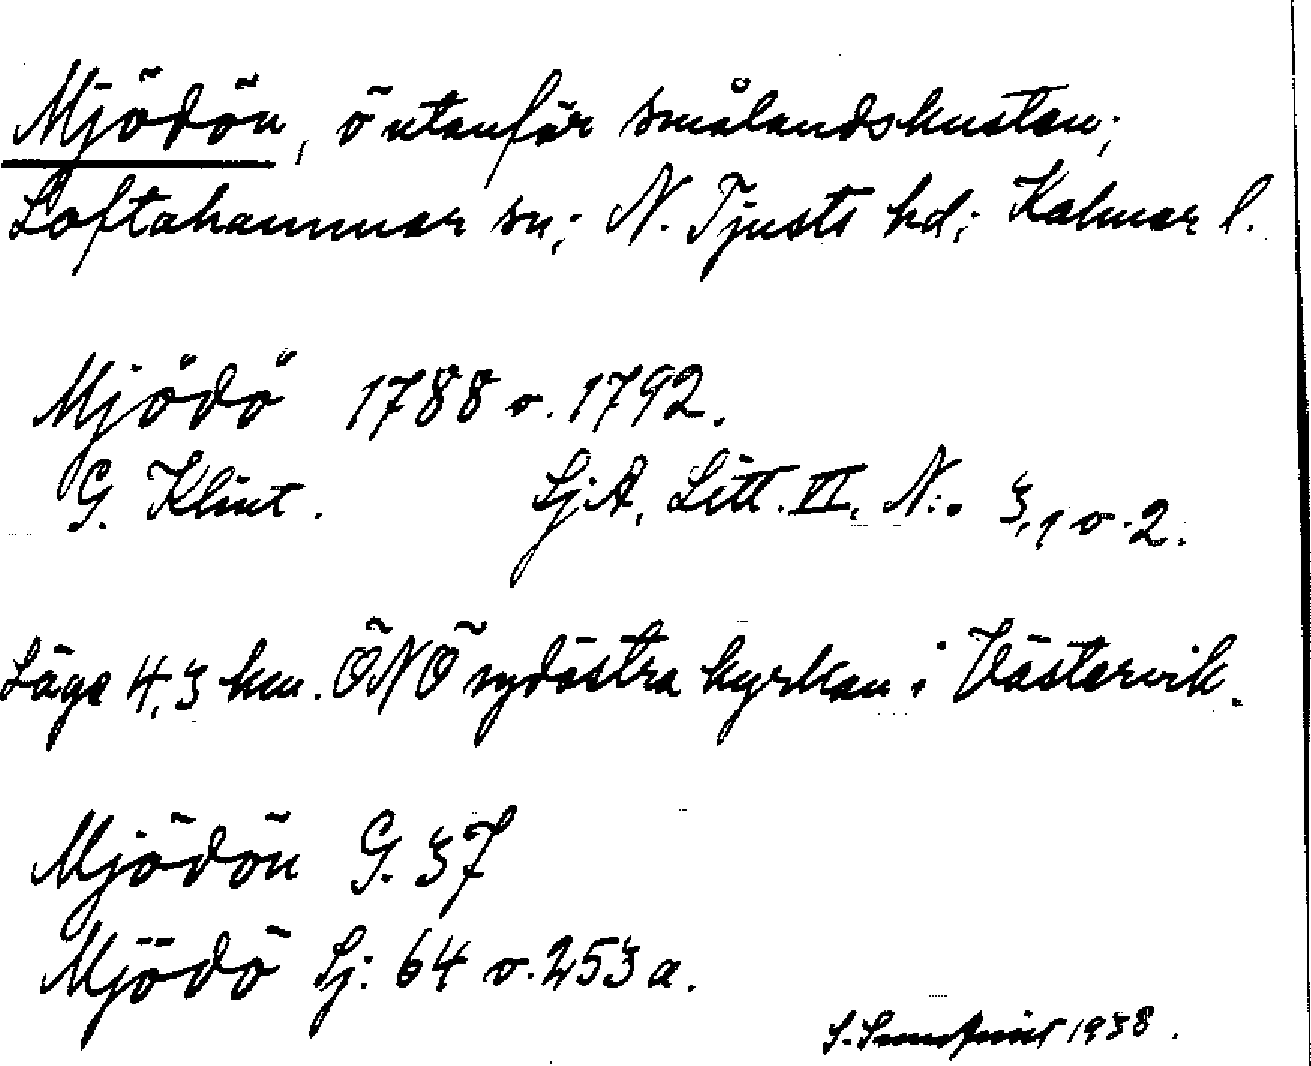 Mjödön, ö utanför smålandskusten;
Loftahammar sn; N. Tjusts hd; Kalmar l.
Mjödö 1788 o. 1792.
G. Klint. Sj.A, Litt. VI, N:o 3,1 o. 2.
Läge 4,3 km. ÖNÖ sydöstra kyrkan i Västervik.
Mjödön G. 37
Mjödö Sj: 64 o. 253 a.
S. 1938.